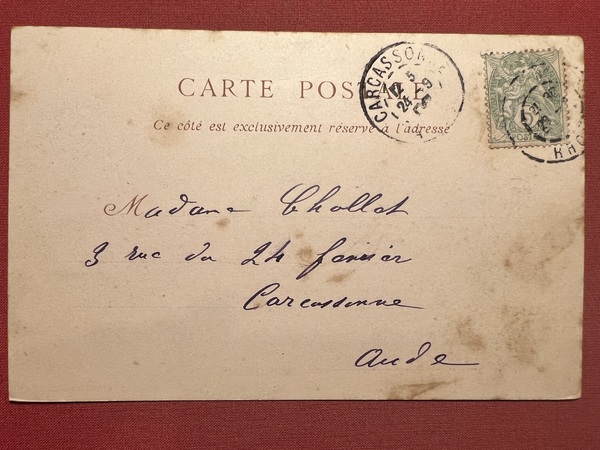 CARTE POSTALE
CARCASSONNE
Ce côté est exclusivement réservé à l'adresse
Madame Chollet
3 rue du 24 février
Carcassonne
Aude